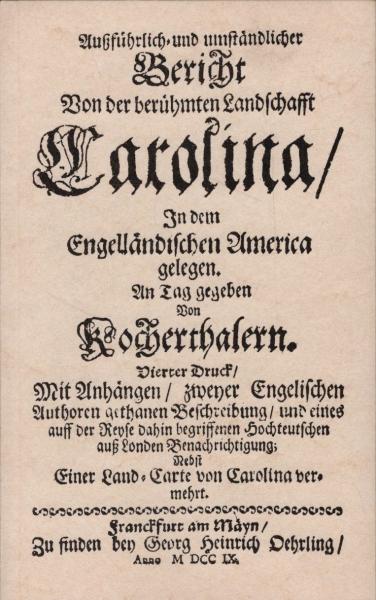 Außführlich-und umständlicher
Bericht
Von der berühmten Landschafft
Carolina/
In dem
Engelländischen America
gelegen.
An Tag gegeben
Von
Kocherthalern.
Vierter Druck/
Mit Anhängen/ zweyer Engelischen
Authoren gethanen Beschreibung/ und eines
auff der Reyse dahin begriffenen Hochteutschen
auß Londen Benachrichtigung;
Nebst
Einer Land-Carte von Carolina ver-
mehrt.
Franckfurt am Mäyn/
Zu finden bey Georg Heinrich Oehrling/
Anno M DCC IX.